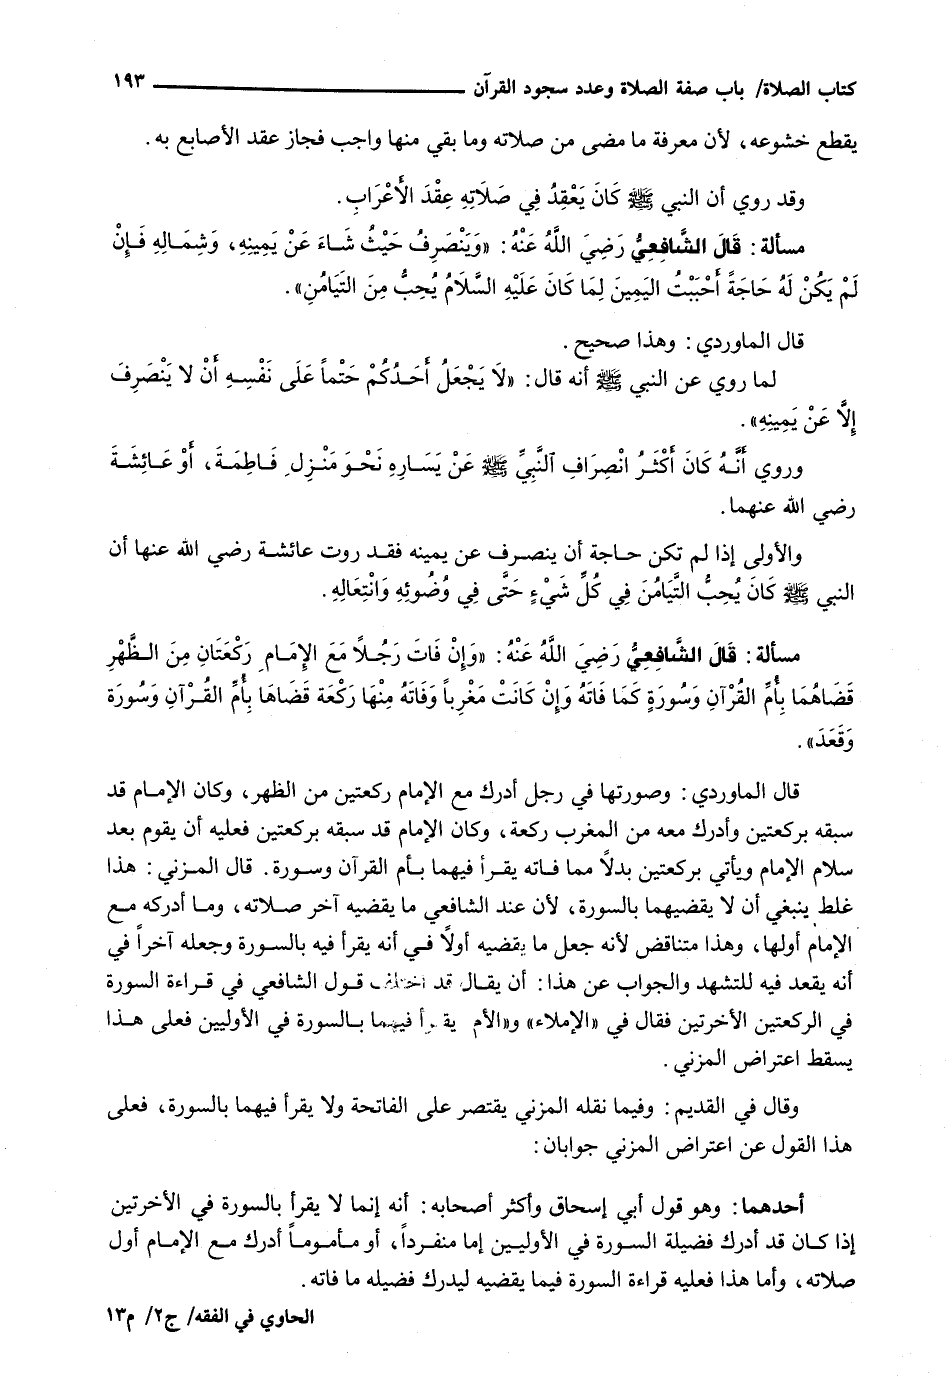 كتاب الصلاة/ باب صفة الصلاة وعدد سجود القرآن ١٩٣
يقطع خشوعه، لأن معرفة ما مضى من صلاته وما بقي منها واجب فجاز عقد الأصابع به.
وقد روي أن النبي ﷺ كَانَ يَعْقِدُ فِي صَلَاتِهِ عِقْدَ الْأَعْرَابِ.
مسألة: قَالَ الشَّافِعِيُّ رَضِيَ اللَّهُ عَنْهُ: «وَيَنْصَرِفُ حَيْثُ شَاءَ عَنْ يَمِينِهِ، وَشِمَالِهِ فَإِنْ
لَمْ يَكُنْ لَهُ حَاجَةً أَحْبَبْتُ اليَمِينَ لِمَا كَانَ عَلَيْهِ السَّلَامُ يُحِبُّ مِنَ التَيَامُنِ».
قال الماوردي: وهذا صحيح.
لما روي عن النبي ﷺ أنه قال: «لَا يَجْعَلُ أَحَدُكُمْ حَتْماً عَلَى نَفْسِهِ أَنْ لا يَنْصَرِفَ
إِلَّا عَنْ يَمِينِهِ».
وروي أَنَّهُ كَانَ أَكْثَرُ انْصِرَافِ النَّبِيِّ ﷺ عَنْ يَسَارِهِ نَحْوَ مَنْزِلِ فَاطِمَةَ، أَوْ عَائِشَةَ
رضي الله عنهما.
والأولى إذا لم تكن حاجة أن ينصرف عن يمينه فقد روت عائشة رضي الله عنها أن
النبي ﷺ كَانَ يُحِبُّ التَّيَامُنَ فِي كُلِّ شَيْءٍ حَتَّى فِي وُضُوئِهِ وَانْتِعَالِهِ.
مسألة: قَالَ الشَّافِعِيُّ رَضِيَ اللَّهُ عَنْهُ: «وَإِنْ فَاتَ رَجُلاً مَعَ الإِمَامِ رَكْعَتَانِ مِنَ الظُّهْرِ
قَضَاهُمَا بِأُمِّ القُرْآنِ وَسُورَةٍ كَمَا فَاتَهُ وَإِنْ كَانَتْ مَغْرِباً وَفَاتَهُ مِنْهَا رَكْعَة قَضَاهَا بِأُمِّ القُرْآنِ وَسُورَة
وَقَعَدَ».
قال الماوردي: وصورتها في رجل أدرك مع الإمام ركعتين من الظهر، وكان الإمام قد
سبقه بركعتين وأدرك معه من المغرب ركعة، وكان الإمام قد سبقه بركعتين فعليه أن يقوم بعد
سلام الإمام ويأتي بركعتين بدلاً مما فاته يقرأ فيهما بأم القرآن وسورة. قال المزني: هذا
غلط ينبغي أن لا يقضيهما بالسورة، لأن عند الشافعي ما يقضيه آخر صلاته، وما أدركه مع
الإمام أولها، وهذا متناقض لأنه جعل ما يقضيه أولاً في أنه يقرأ فيه بالسورة وجعله آخراً في
أنه يقعد فيه للتشهد والجواب عن هذا: أن يقال قد اختلف قول الشافعي في قراءة السورة
في الركعتين الأخرتين فقال في «الإملاء» و«الأم يقرأ فيهما بالسورة في الأوليين فعلى هذا
يسقط اعتراض المزني.
وقال في القديم: وفيما نقله المزني يقتصر على الفاتحة ولا يقرأ فيهما بالسورة، فعلى
هذا القول عن اعتراض المزني جوابان:
أحدهما: وهو قول أبي إسحاق وأكثر أصحابه: أنه إنما لا يقرأ بالسورة في الأخرتين
إذا كان قد أدرك فضيلة السورة في الأوليين إما منفرداً، أو مأموماً أدرك مع الإمام أول
صلاته، وأما هذا فعليه قراءة السورة فيما يقضيه ليدرك فضيله ما فاته.
الحاوي في الفقه/ ج٢/ م١٣